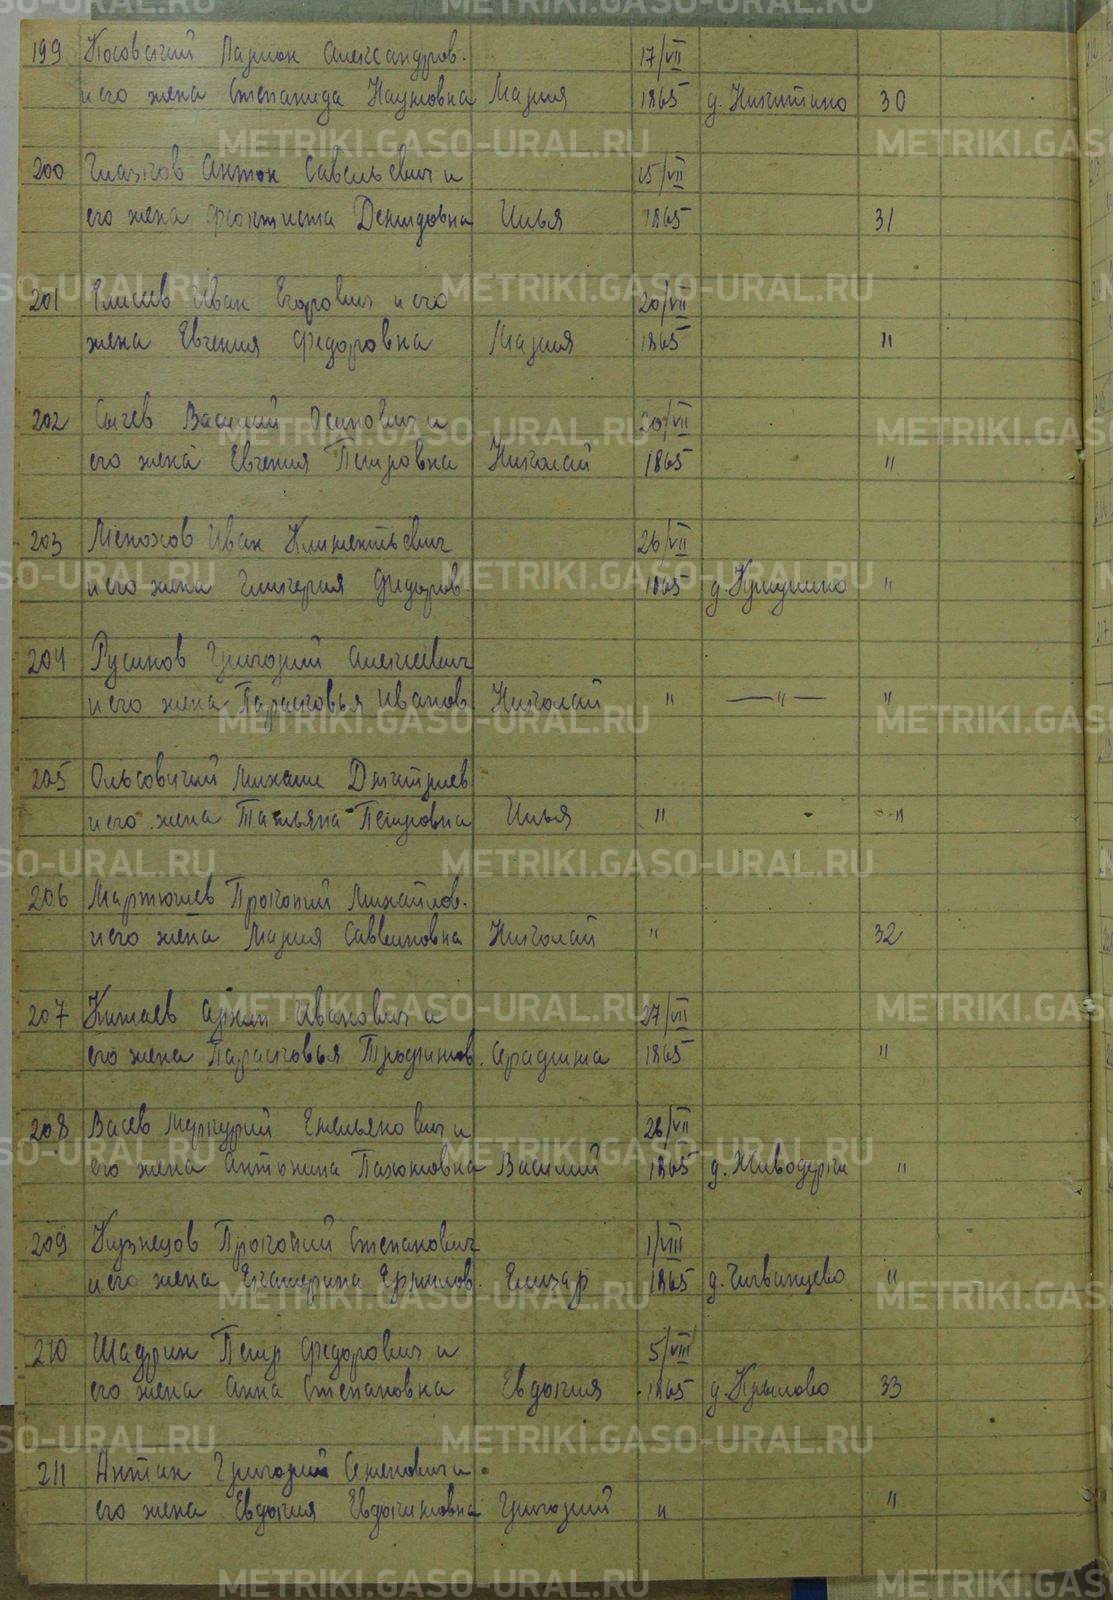 199 Косовский Ларион Александров. 17/VII
и его жена Степанида Наумовна Мария 1865 д. Никитино 30
200 Глазков Антон Савельевич и 15/VII
его жена Феоктиста Демидовна Илья 1865 31
201 Иван Егорович и его 20/VII
жена Евгения Федоровна Мария 1865 "
202 Сычев Василий Осипович и 20/VII
его жена Евгения Петровна Николай 1865 "
203 Иван Климентьевич 26/VII
и его жена Гликерия Федоров. 1865 "
204 Русинов Григорий Алексеевич
и его жена Парасковья Иванов. Николай " — " — "
205 Михаил Дмитриев
и его жена Татьяна Петровна Илья " "
206 Мартюшев Прокопий Михайлов.
и его жена Мария Саввиновна Николай " 32
207 Китаев Архип Иванович и 27/VII
его жена Парасковья Трофимов. Серафима 1865 "
208 Васев Меркурий Емельянович и 26/VII
его жена Антонина Пахомовна Василий 1865 д. "
209 Кузнецов Прокопий Степанович 1/VIII
и его жена Екатерина Ермилов. Елизар 1865 д. "
210 Шадрин Петр Федорович и 5/VIII
его жена Анна Степановна Евдокия 1865 д. Крылово 33
211 Антип Григорий Семенович и
его жена Евдокия Евдокимовна Григорий " "
METRIKI.GASO-URAL.RU